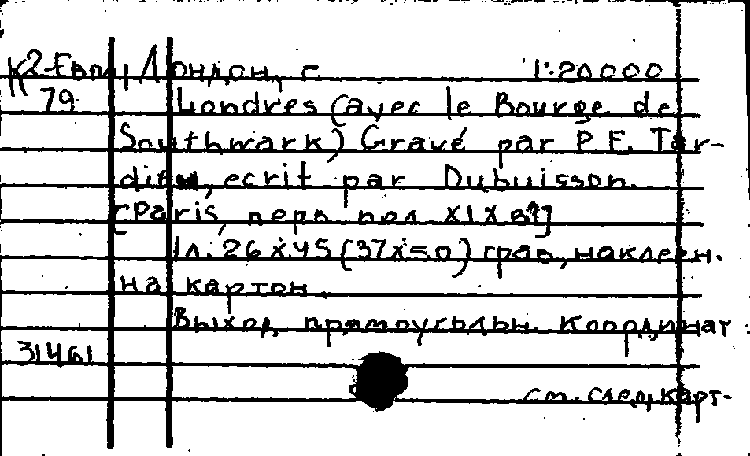 К2-Евр, Лондон, г. 1:20000
79 Londres (avec le Bourge de
Southwark) Gravé par P.F. Tar-
dieu, ecrit par Dubuisson.
[Paris, перв пол XIX в?]
1л. 26x45 (37x50) грав, наклеен.
на картон.
Выход прямоугольн. Координат
31461
см. след. карт-